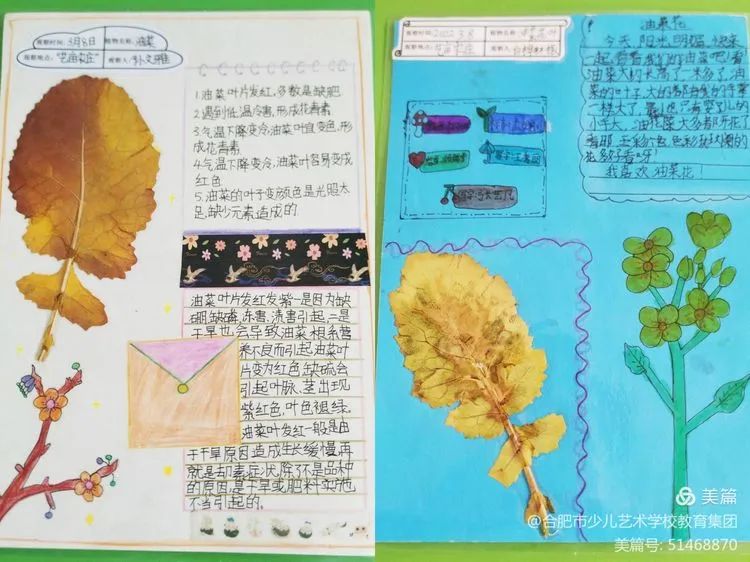 观察时间:3月8日
植物名称:油菜
观察地点:"艺亩茶庄"
观察人:朴文雅
1.油菜叶片发红,多数是缺肥
2.遇到低温冷害,形成花青素
3.气温下降变冷油菜叶宜变色,形
成花青素
4.气温下降变冷,油菜叶容易变成
红色
5.油菜的叶子变颜色是光照太
足,缺少元素造成的.
油菜叶片发红发紫一是因为缺
硼,缺磷,冻害,渍害引起.二是
干旱也会导致油菜根系营
养不良而引起油菜叶
片变为红色缺硫会
引起叶脉,茎出现
紫红色,叶色褪绿.
油菜叶发红一般是由
于干旱原因造成生长缓慢,再
就是却素症状,除了不是品种
的原因,是干旱或肥料实施
不当引起的.
观察时间:2022.3.8
植物名称:
观察地点:
观察人:
油菜花
今天,阳光明媚,快来
一起看看我们的油菜吧!看
油菜大约长高了一米多了,油
菜的叶子,大的
一样大了,
小手大,油花
看那,五彩
花多好看呀!
我喜欢油菜花!
美篇
@合肥市少儿艺术学校教育集团
美篇号: 51468870